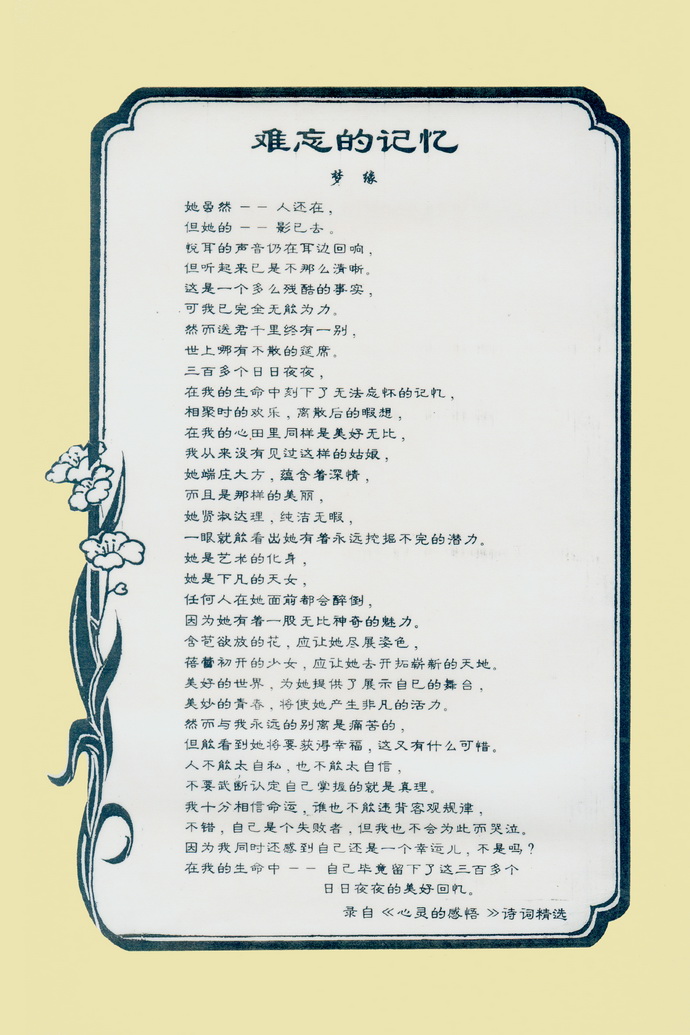 难忘的记忆
梦 缘
她虽然－－人还在，
但她的－－影已去。
悦耳的声音仍在耳边回响，
但听起来已是不那么清晰。
这是一个多么残酷的事实，
可我已完全无能为力。
然而送君千里终有一别，
世上哪有不散的筵席。
三百多个日日夜夜，
在我的生命中刻下了无法忘怀的记忆，
相聚时的欢乐，离散后的暇想，
在我的心田里同样是美好无比，
我从来没有见过这样的姑娘，
她端庄大方，蕴含着深情，
而且是那样的美丽，
她贤淑达理，纯洁无暇，
一眼就能看出她有着永远挖掘不完的潜力。
她是艺术的化身，
她是下凡的天女，
任何人在她面前都会醉倒，
因为她有着一股无比神奇的魅力。
含苞欲放的花，应让她尽展姿色，
蓓蕾初开的少女，应让她去开拓崭新的天地。
美好的世界，为她提供了展示自己的舞台，
美妙的青春，将使她产生非凡的活力。
然而与我永远的别离是痛苦的，
但能看到她将要获得幸福，这又有什么可惜。
人不能太自私，也不能太自信，
不要武断认定自己掌握的就是真理。
我十分相信命运，谁也不能违背客观规律，
不错，自己是个失败者，但我也不会为此而哭泣。
因为我同时还感到自己还是一个幸运儿，不是吗？
在我的生命中－－自己毕竟留下了这三百多个
日日夜夜的美好回忆。
录自《心灵的感悟》诗词精选